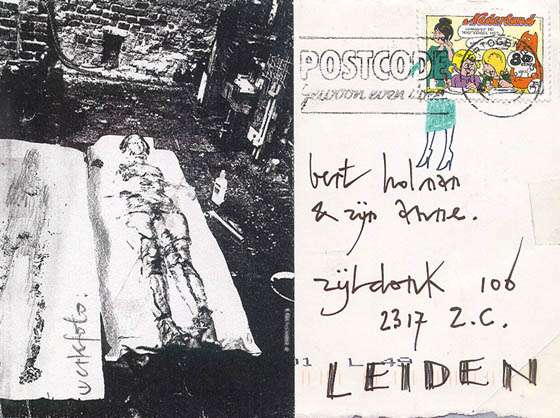 werkfoto.
Nederland
POSTCODE
gewoon even
bert holman
& zijn Anne.
zijldonk 106
2317 Z.C.
LEIDEN